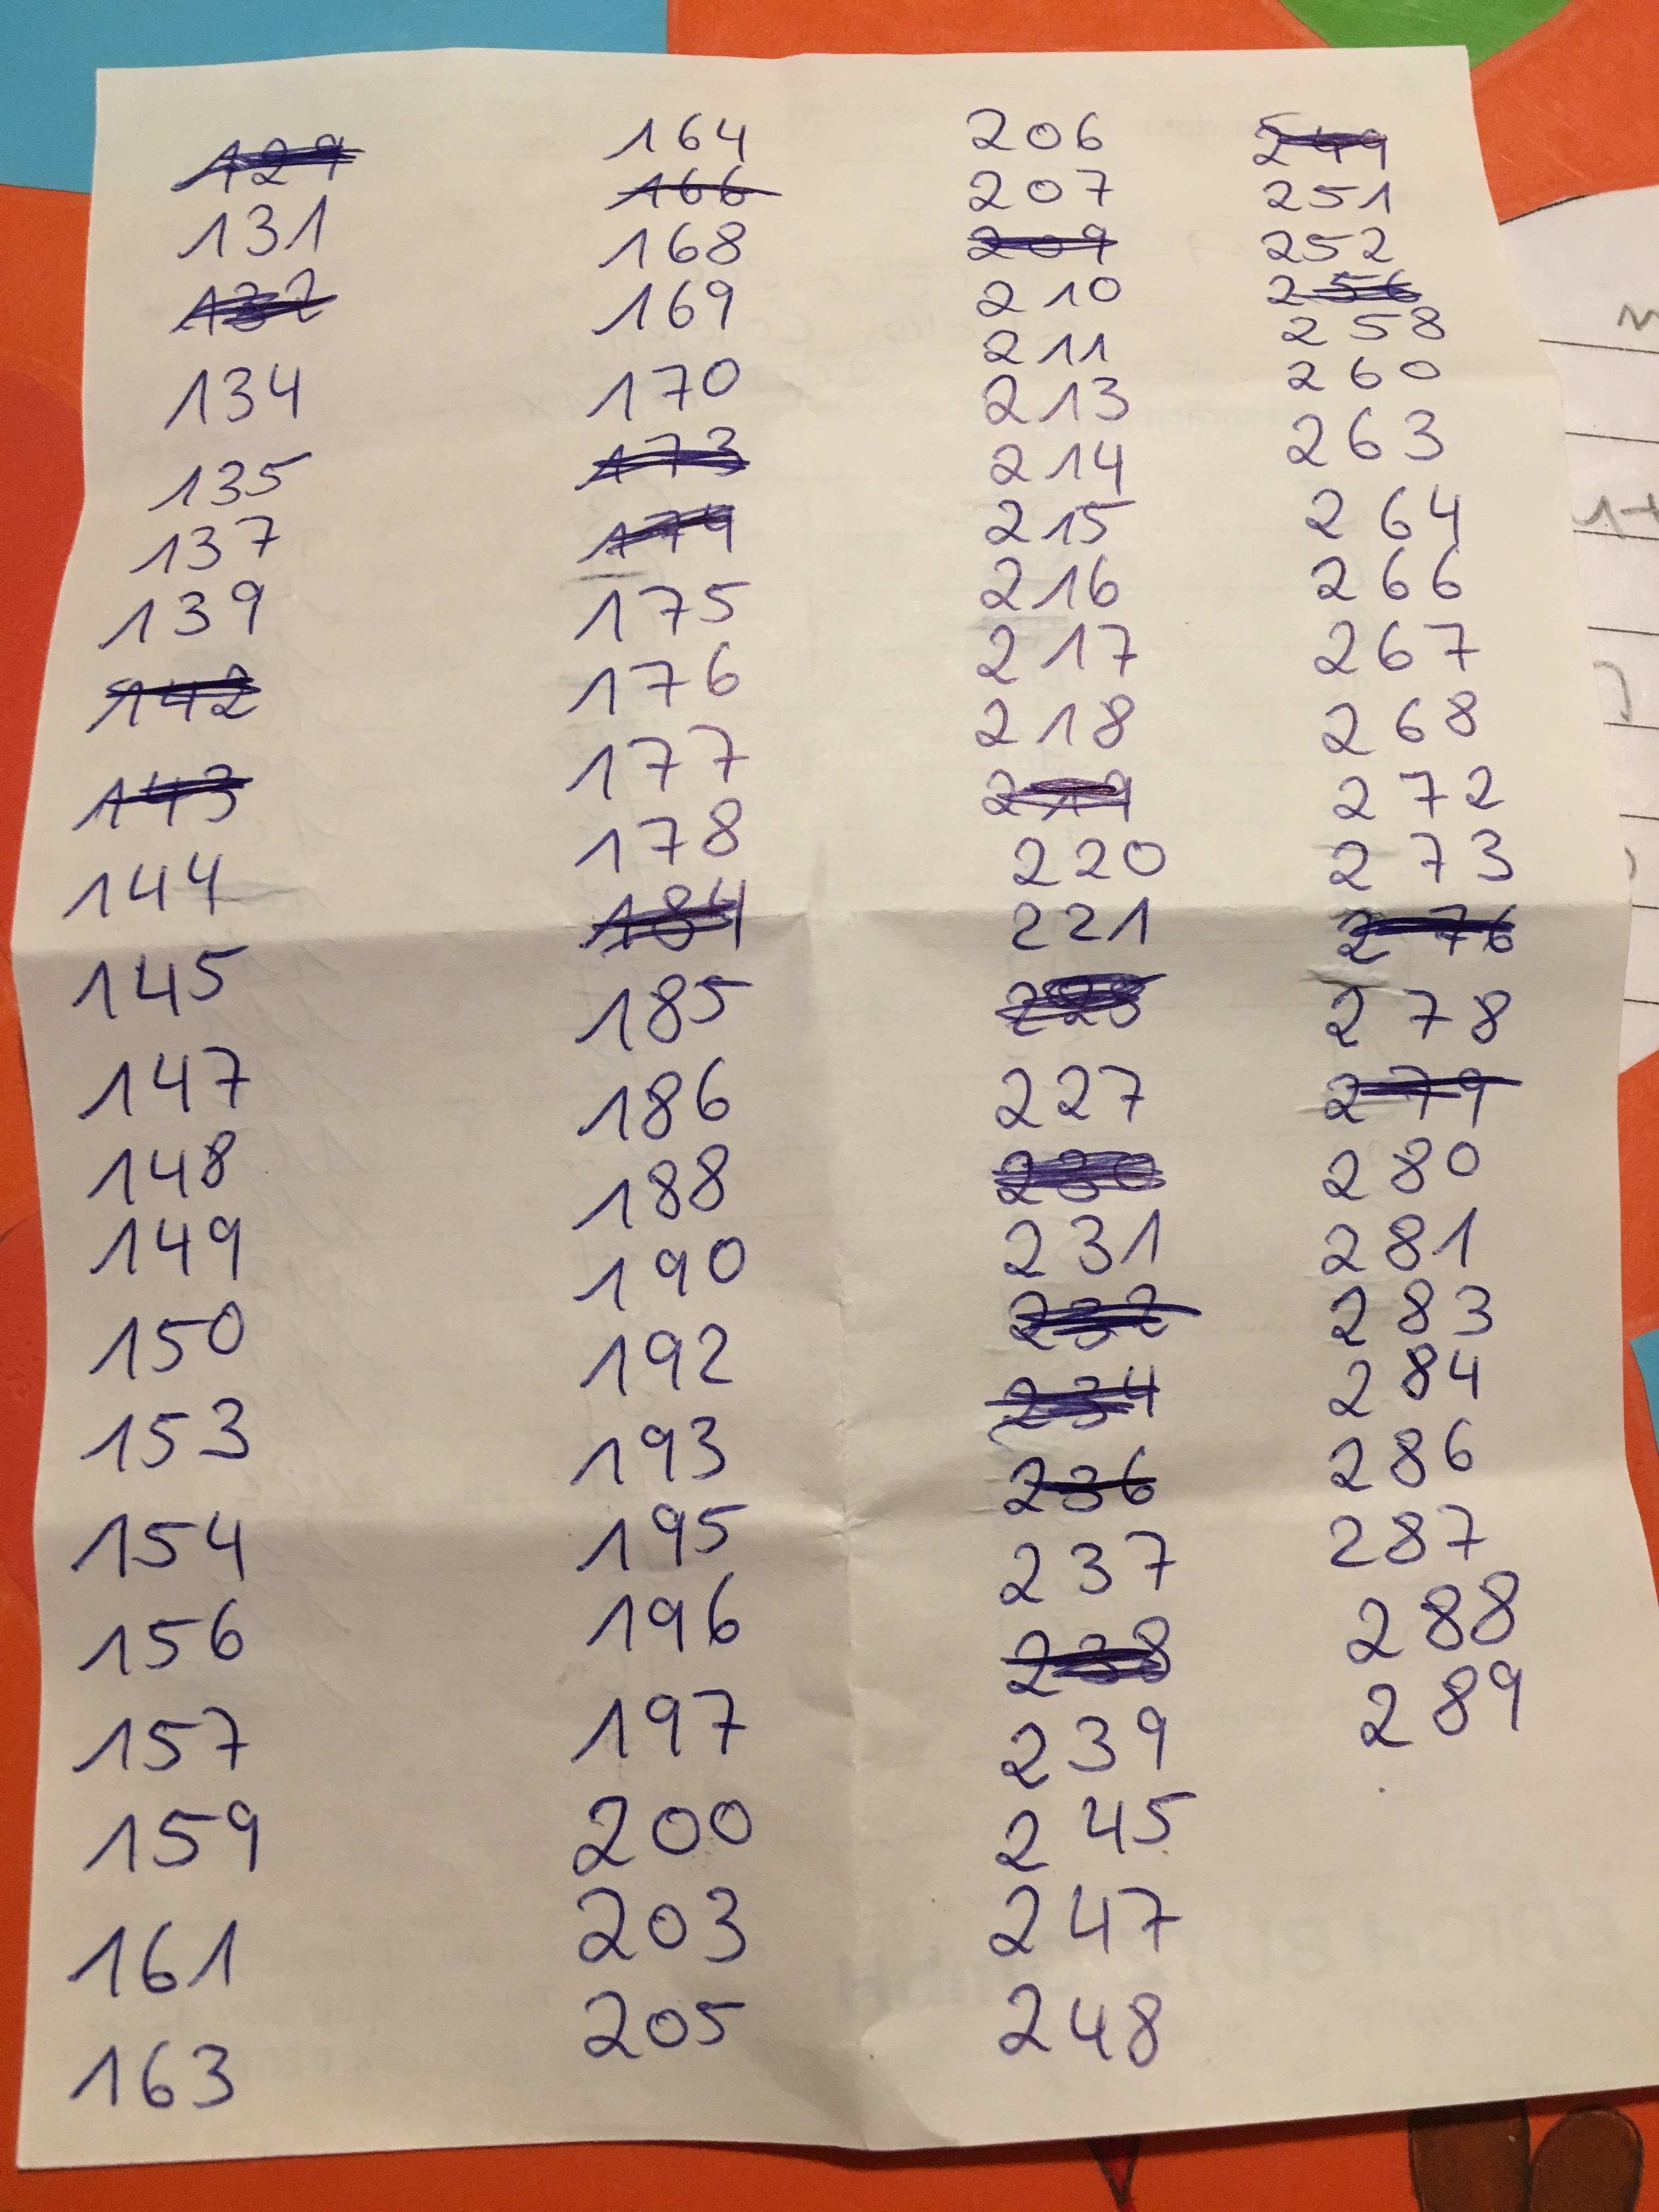 129
131
132
134
135
137
139
142
143
144
145
147
148
149
150
153
154
156
157
159
161
163
164
166
168
169
170
173
174
175
176
177
178
184
185
186
188
190
192
193
195
196
197
200
203
205
206
207
209
210
211
213
214
215
216
217
218
219
220
221
227
230
231
232
234
236
237
238
239
245
247
248
249
251
252
256
258
260
263
264
266
267
268
272
273
276
278
279
280
281
283
284
286
287
288
289